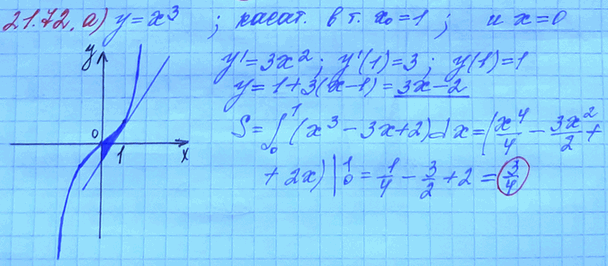 21.72. а) y = x³ ; касат. в т. x₀ = 1 ; и x = 0
y' = 3x² ; y'(1) = 3 ; y(1) = 1
y = 1 + 3(x − 1) = 3x − 2
S = ∫₀¹ (x³ − 3x + 2) dx = (x⁴/4 − 3x²/2 +
+ 2x) |₀¹ = 1/4 − 3/2 + 2 = 3/4
y
0
1
x